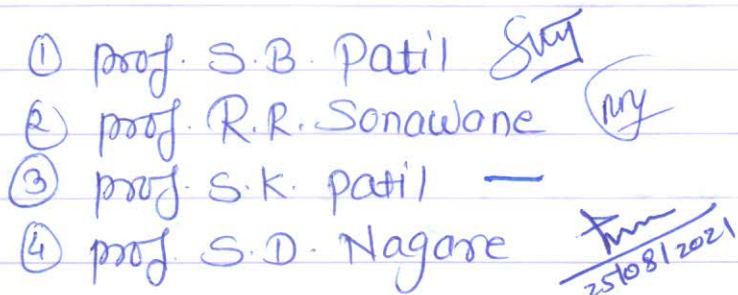 ① prof. S.B. Patil
② prof. R.R. Sonawane
③ prof. S.K. patil —
④ prof. S.D. Nagare
25/08/2021